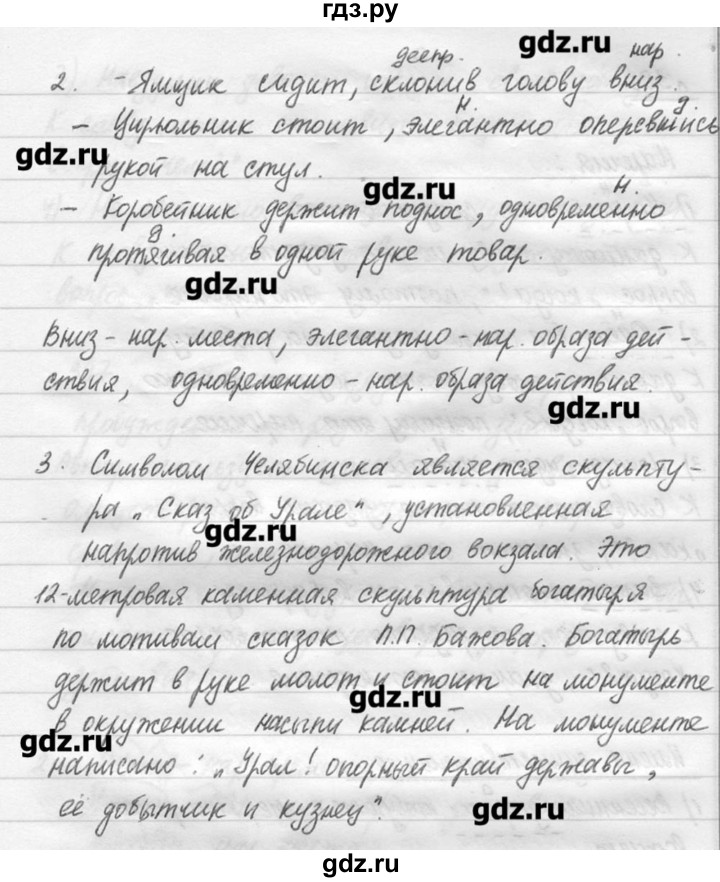 гдз.ру
gdz.ru
деепр. нар.
2. - Ямщик сидит, склонив голову вниз.
н. д.
- Цирюльник стоит, элегантно опереввшись
gdz.ru
рукой на стул.
gdz.ru
н.
- Коробейник держит поднос, одновременно
д.
протягивая в одной руке товар.
gdz.ru
Вниз - нар. места, элегантно - нар. образа дей-
ствия, одновременно - нар. образа действия.
gdz.ru
3. Символом Челябинска является скульпту-
ра „Сказ об Урале“, установленная
gdz.ru
напротив железнодорожного вокзала. Это
12-метровая каменная скульптура богатыря
по мотивам сказок П.П. Бажова. Богатырь
держит в руке молот и стоит на монументе
gdz.ru
в окружении насыпи камней. На монументе
gdz.ru
написано: „Урал! опорный край державы,
её добытчик и кузнец“.
gdz.ru
gdz.ru